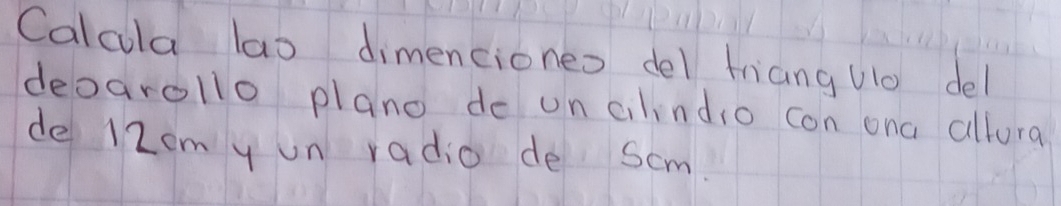 Calcula las dimenciones del triangulo del
desarollo plano de un cilindro con una altura
de 12cm y un radio de 5cm.